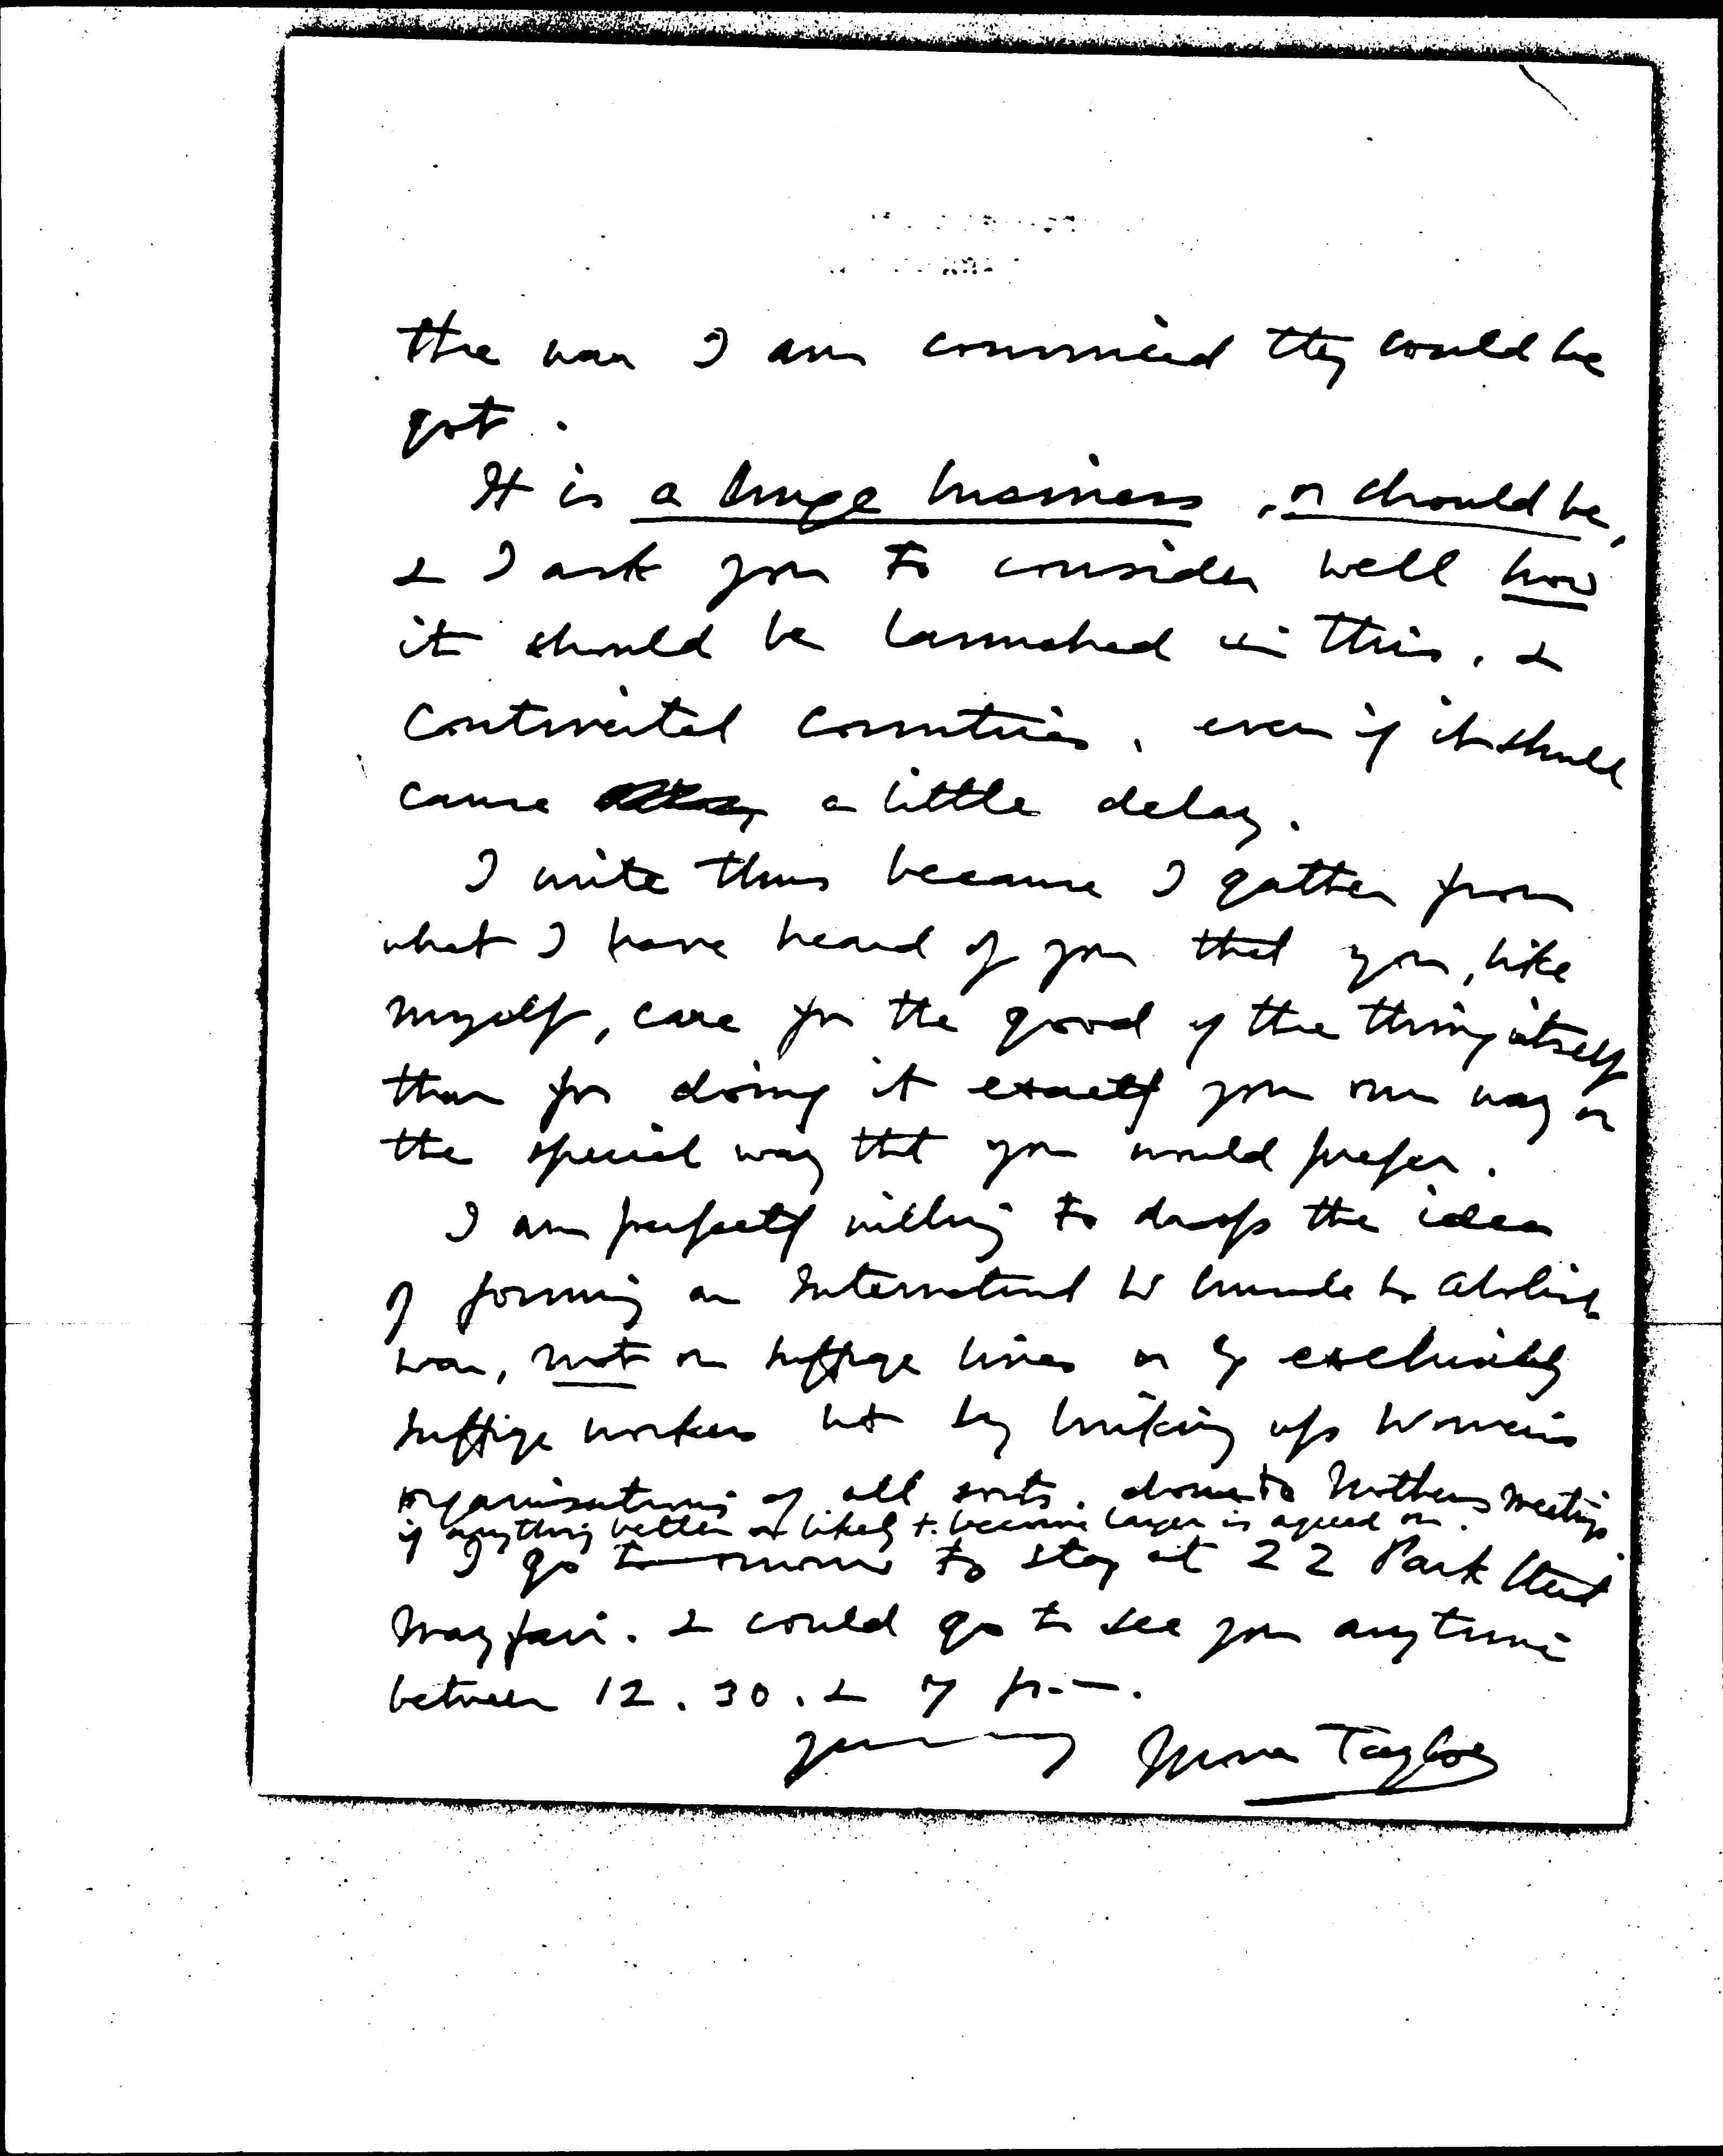 the war I am convinced they could be
got.
It is a huge business, or should be,
& I ask you to consider well how
it should be launched in this, &
continental countries, even if it should
cause a little delay.
I write thus because I gather from
what I have heard of you that you, like
myself, care for the good of the thing itself
than for doing it exactly your own way or
the special way that you would prefer.
I am perfectly willing to drop the idea
of forming an International W to abolish
war, not on suffrage lines or by exclusively
suffrage workers but by linking up Women's
organisations of all sorts, down to Mothers Meetings
if anything better or likely to become larger is agreed on.
I go to-morrow to stay at 22 Park Street
Mayfair. & could go to see you anytime
between 12.30. & 7 p.m.
Mona Taylor